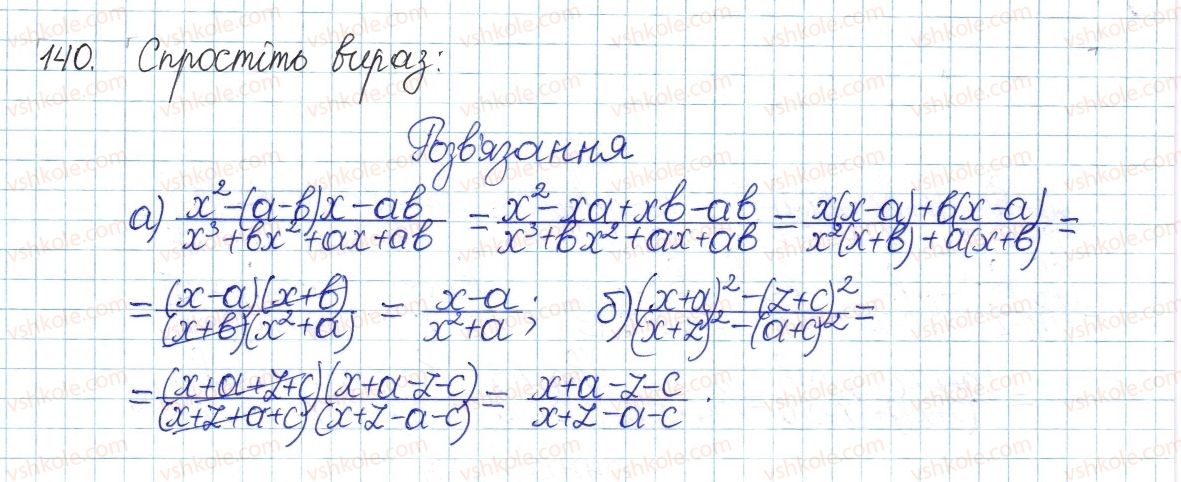 140. Спростіть вираз:
Розв'язання
а) (x²-(a-b)x-ab)/(x³+bx²+ax+ab) = (x²-xa+xb-ab)/(x³+bx²+ax+ab) = (x(x-a)+b(x-a))/(x²(x+b)+a(x+b)) =
= ((x-a)(x+b))/((x+b)(x²+a)) = (x-a)/(x²+a); б) ((x+a)²-(z+c)²)/((x+z)²-(a+c)²) =
= ((x+a+z+c)(x+a-z-c))/((x+z+a+c)(x+z-a-c)) = (x+a-z-c)/(x+z-a-c).
vshkole.com